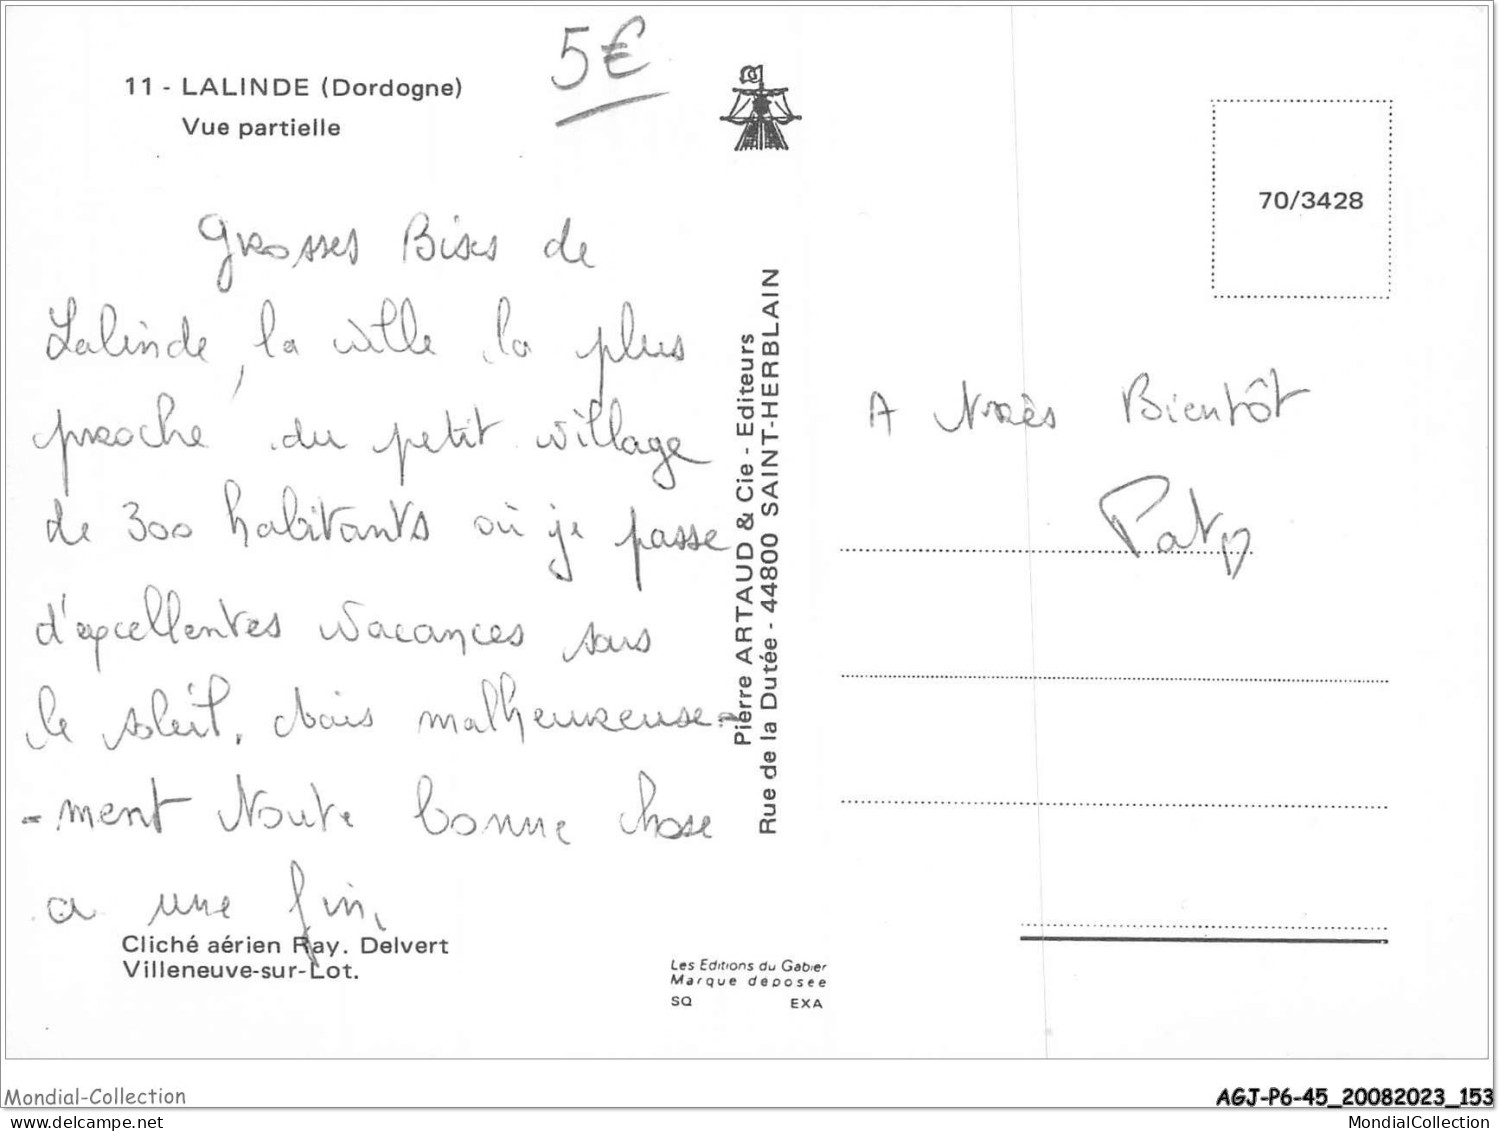 11 - LALINDE (Dordogne)
Vue partielle
5€
70/3428
Grosses Bises de
Lalinde, la ville la plus
proche du petit village
de 300 habitants où je passe
d'excellentes vacances sous
le soleil. Mais malheureuse-
-ment toute bonne chose
a une fin.
Cliché aérien Ray. Delvert
Villeneuve-sur-Lot.
Pierre ARTAUD & Cie - Editeurs
Rue de la Dutée - 44800 SAINT-HERBLAIN
Les Editions du Gabier
Marque déposée
SQ EXA
A très Bientôt
Mondial-Collection
AGJ-P6-45_20082023_153
MondialCollection